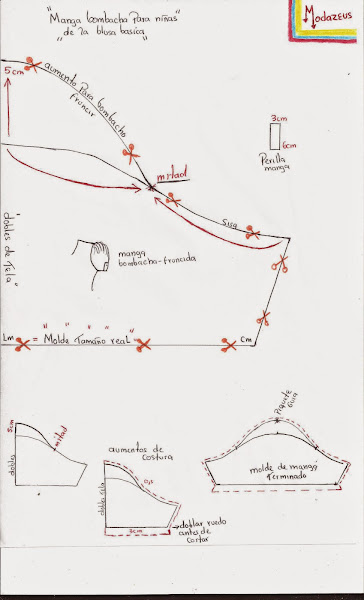 "Manga bombacha Para niñas"
"de la blusa basica"
Modazeus
5cm
aumento Para bombacho
fruncir
3cm
6cm
Perilla
manga
mitad
Sisa
dobles de tela"
manga
bombacha-fruncida
Lm = "Molde Tamaño real" Cm
5cm
mitad
dobles
aumentos de
costura
dobles tela
2cm
doblar ruedo
antes de
cortar
Piquete
Guia
molde de manga
Terminado